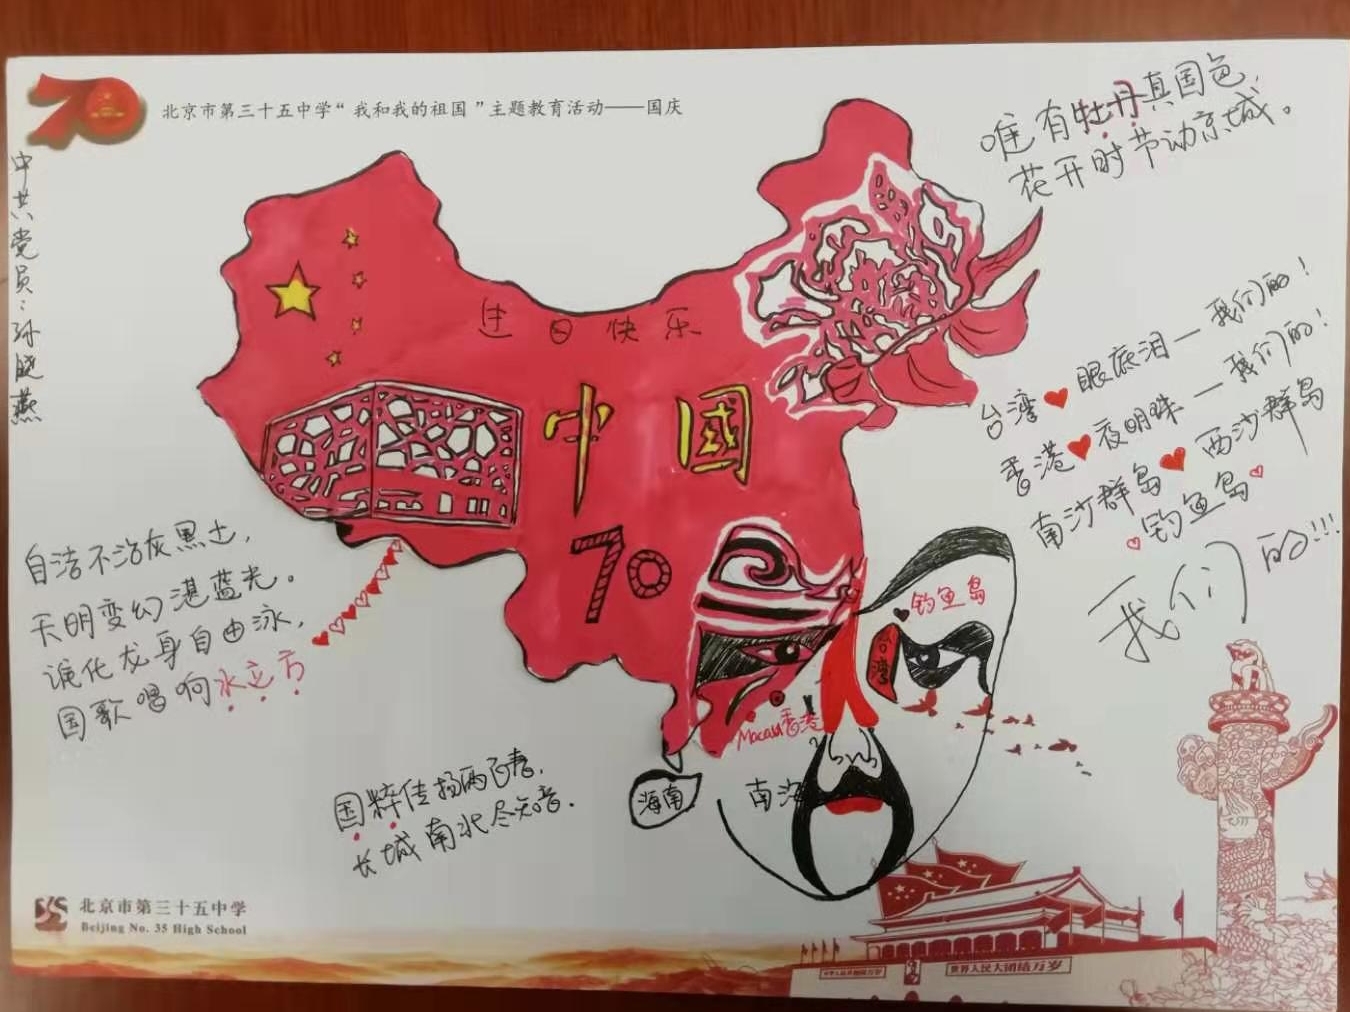 70
北京市第三十五中学“我和我的祖国”主题教育活动——国庆
中共党员：孙晓燕
唯有牡丹真国色
花开时节动京城。
生日快乐
中國
70
台湾❤眼底泪—我们的！
香港❤夜明珠—我们的！
南沙群岛❤西沙群岛
❤钓鱼岛❤
我们的!!!
自洁不沾灰黑土，
天明变幻湛蓝光。
谁化龙身自由泳，
国歌唱响水立方
钓鱼岛
台湾
Macau香港
海南
南海
国粹传扬两
长城南北尽知音.
北京市第三十五中学
Beijing No. 35 High School
世界人民大团结万岁